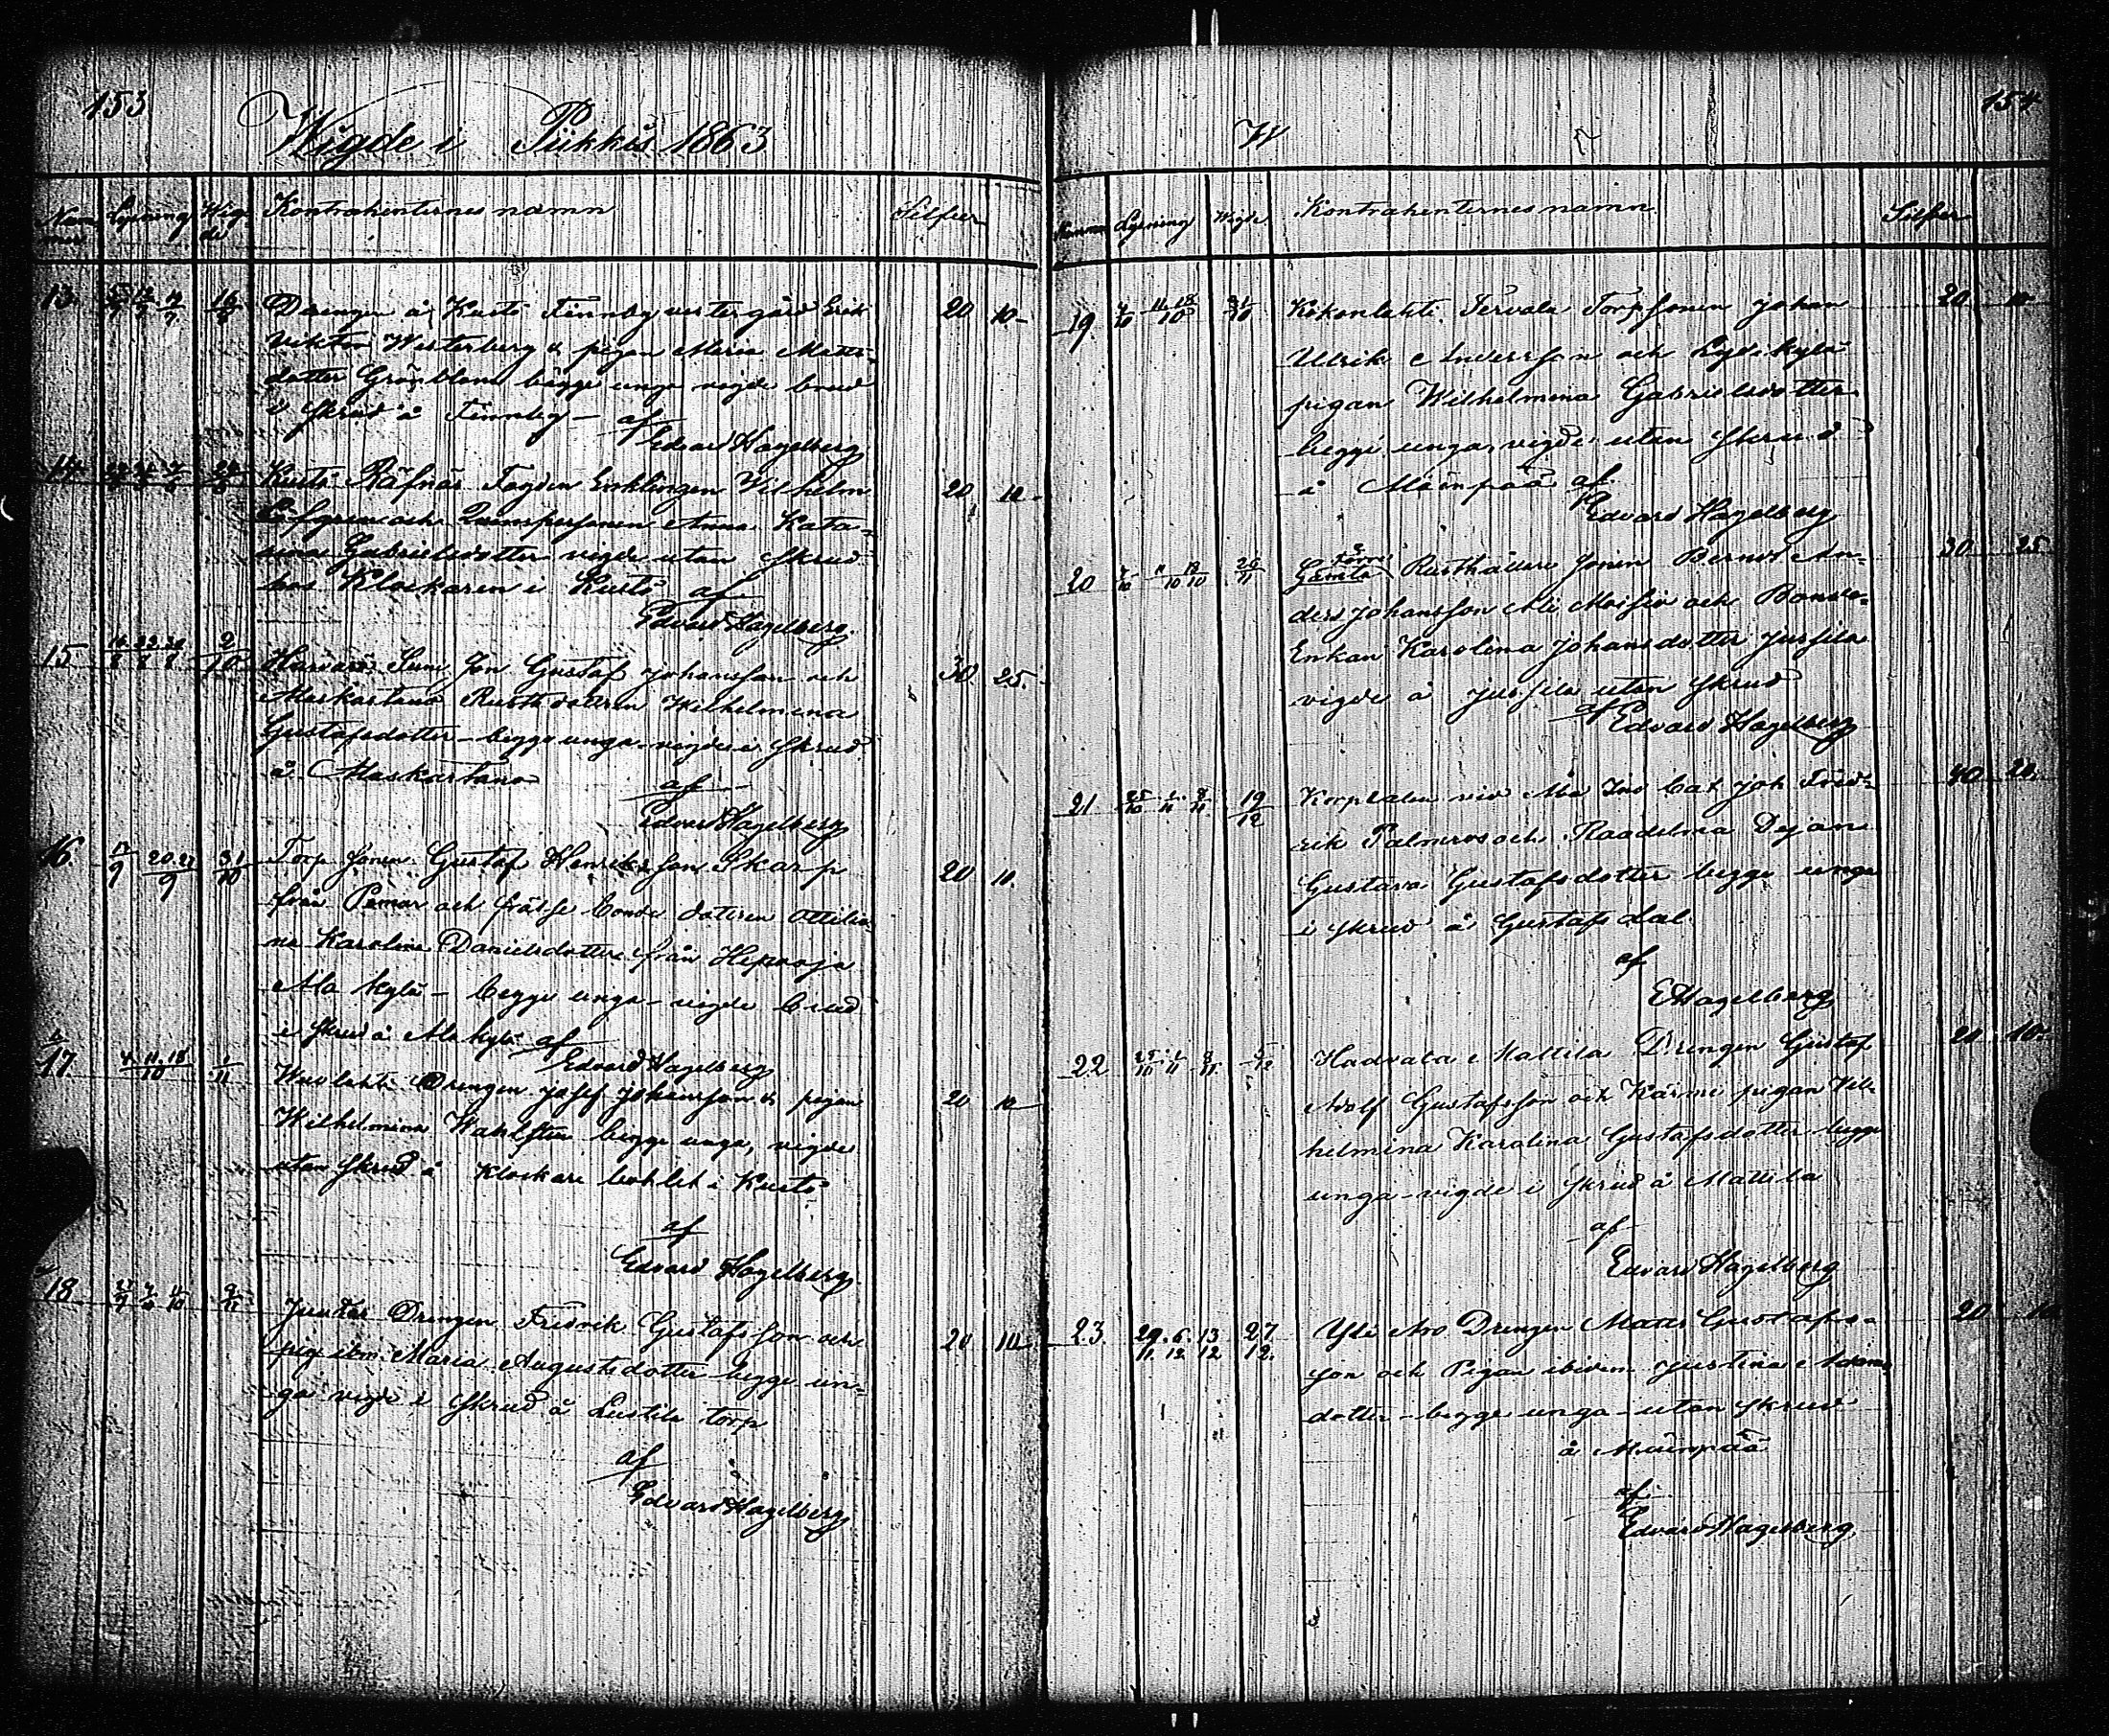 153
Wigde i Piikkis 1863
Nummer Lysning Wigde Kontrahenternes namn Silfver
13. 5/7 12/7 19/7 16/8 Drengen å Kustö Finnby westergård Erik 20 10
Viktor Westerberg & pigan Maria Matts-
dotter Grönblom begge unga vigde brud
i skrud å Finnby – af
Edvard Hagelberg
14 Kustö Räfnäs Fogden Enklingen Vilhelm 20 10
Löfgren och Qvinspersonen Anna Kata-
rina Gabrielsdotter vigde utan skrud
hos Klockaren i Kustö af
Edvard Hagelberg.
15 16/8 23/8 30/8 2/10 Sum. Son Gustaf Johansson och 30 25.
Maskartano Rusth dottren Wilhelmina
Gustafsdotter – begge unga – vigde i skrud
å Maskartano af
Edvard Hagelberg
16. 13/9 20.27/9 31/10 Torp Sonen Gustaf Henriksson Skarp 20 10.
från Pemar och frälse bonde dottren Ottilia-
na Karolina Danielsdotter från Hepooja
Ala kylä – begge unga – vigde brud
i skrud å Ala kylä af
Edvard Hagelberg
17. 4.11.18/10 1/11 Drengen Josef Johansson & pigan 20 10
Wilhelmina Wahlsten begge unga, vigde
utan skrud å Klockare bohlet i Kustö
af
Edvard Hagelberg
18 27/9 4/10 11/10 9/11 Drengen Fredrik Gustafsson och 20 10
pig. ibm. Maria Augustsdotter begge un-
ga vigde i skrud å Lustila torp
af
Edvard Hagelberg
154
W
Nummer Lysning Wigde. Kontrahenternes namn. Silfver
19. 4/10 11 18/10 31/10 Kokonlahti Tervala Torpsonen Johan 20 10
Ulrik Andersson och Lydikylä
pigan Wilhelmina Gabrielsdotter
begge unga, vigde utan skrud
å Mäenpää af
Edvard Hagelberg
20 4/10 11/10 18/10 26/11 Gamla Rusthållare Sonen Bernd An- 30 25
ders Johansson Ali Moisio och Bonde-
Enkan Karolina Johansdotter Jussila
vigde å Jussila utan skrud
af
Edvard Hagelberg
21 25/10 1/11 8/11 19/12 Korpralen vid Åbo Ind. Bat Joh Fred- 40 20.
rik Palmros och Raadelma Dejan
Gustava Gustafsdotter begge unga
i skrud å Gustafsdal
af
E Hagelberg
22 25/10 1/11 8/11 5/12 Hadvala Mattila Drengen Gustaf 20 10.
Adolf Gustafsson och pigan Vil-
helmina Karolina Gustafsdotter begge
unga – vigde i skrud å Mattila
af
Edvard Hagelberg
23. 29/11. 6/12 13/12 27/12. Yli Aro Drengen Matts Gustafs- 20
son och Pigan ibidem Justina Adams
dotter – begge unga – utan skrud
å Mäenpää
af
Edvard Hagelberg